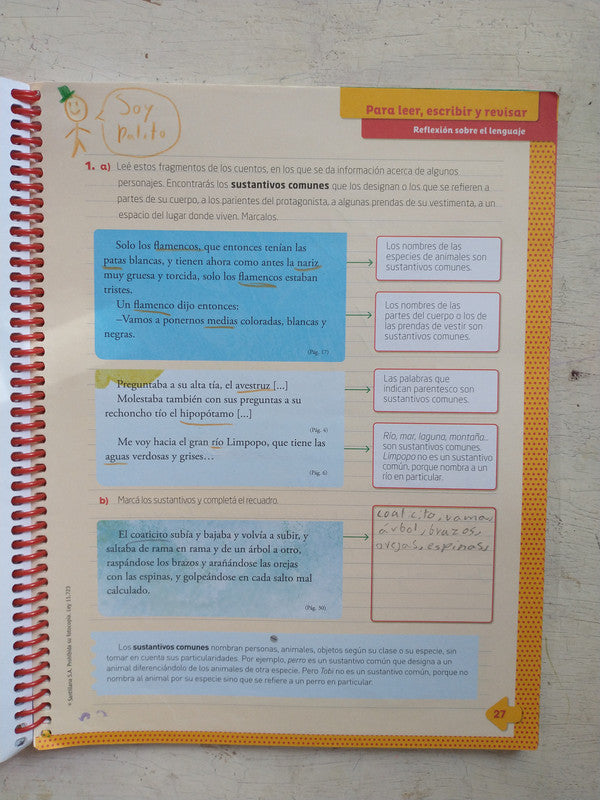 Soy
palito
Para leer, escribir y revisar
Reflexión sobre el lenguaje
1. a) Leé estos fragmentos de los cuentos, en los que se da información acerca de algunos
personajes. Encontrarás los sustantivos comunes que los designan o los que se refieren a
partes de su cuerpo, a los parientes del protagonista, a algunas prendas de su vestimenta, a un
espacio del lugar donde viven. Marcalos.
Solo los flamencos, que entonces tenían las
patas blancas, y tienen ahora como antes la nariz
muy gruesa y torcida, solo los flamencos estaban
tristes.
Un flamenco dijo entonces:
–Vamos a ponernos medias coloradas, blancas y
negras.
(Pág. 17)
Los nombres de las
especies de animales son
sustantivos comunes.
Los nombres de las
partes del cuerpo o los de
las prendas de vestir son
sustantivos comunes.
Preguntaba a su alta tía, el avestruz [...]
Molestaba también con sus preguntas a su
rechoncho tío el hipopótamo [...]
(Pág. 4)
Me voy hacia el gran río Limpopo, que tiene las
aguas verdosas y grises...
(Pág. 6)
Las palabras que
indican parentesco son
sustantivos comunes.
Río, mar, laguna, montaña...
son sustantivos comunes.
Limpopo no es un sustantivo
común, porque nombra a un
río en particular.
b) Marcá los sustantivos y completá el recuadro.
El coaticito subía y bajaba y volvía a subir, y
saltaba de rama en rama y de un árbol a otro,
raspándose los brazos y arañándose las orejas
con las espinas, y golpeándose en cada salto mal
calculado.
(Pág. 30)
coaticito, rama,
árbol, brazos,
orejas, espinas,
Los sustantivos comunes nombran personas, animales, objetos según su clase o su especie, sin
tomar en cuenta sus particularidades. Por ejemplo, perro es un sustantivo común que designa a un
animal diferenciándolo de los animales de otra especie. Pero Tobi no es un sustantivo común, porque no
nombra al animal por su especie sino que se refiere a un perro en particular.
© Santillana S.A. Prohibida su fotocopia. Ley 11.723
27